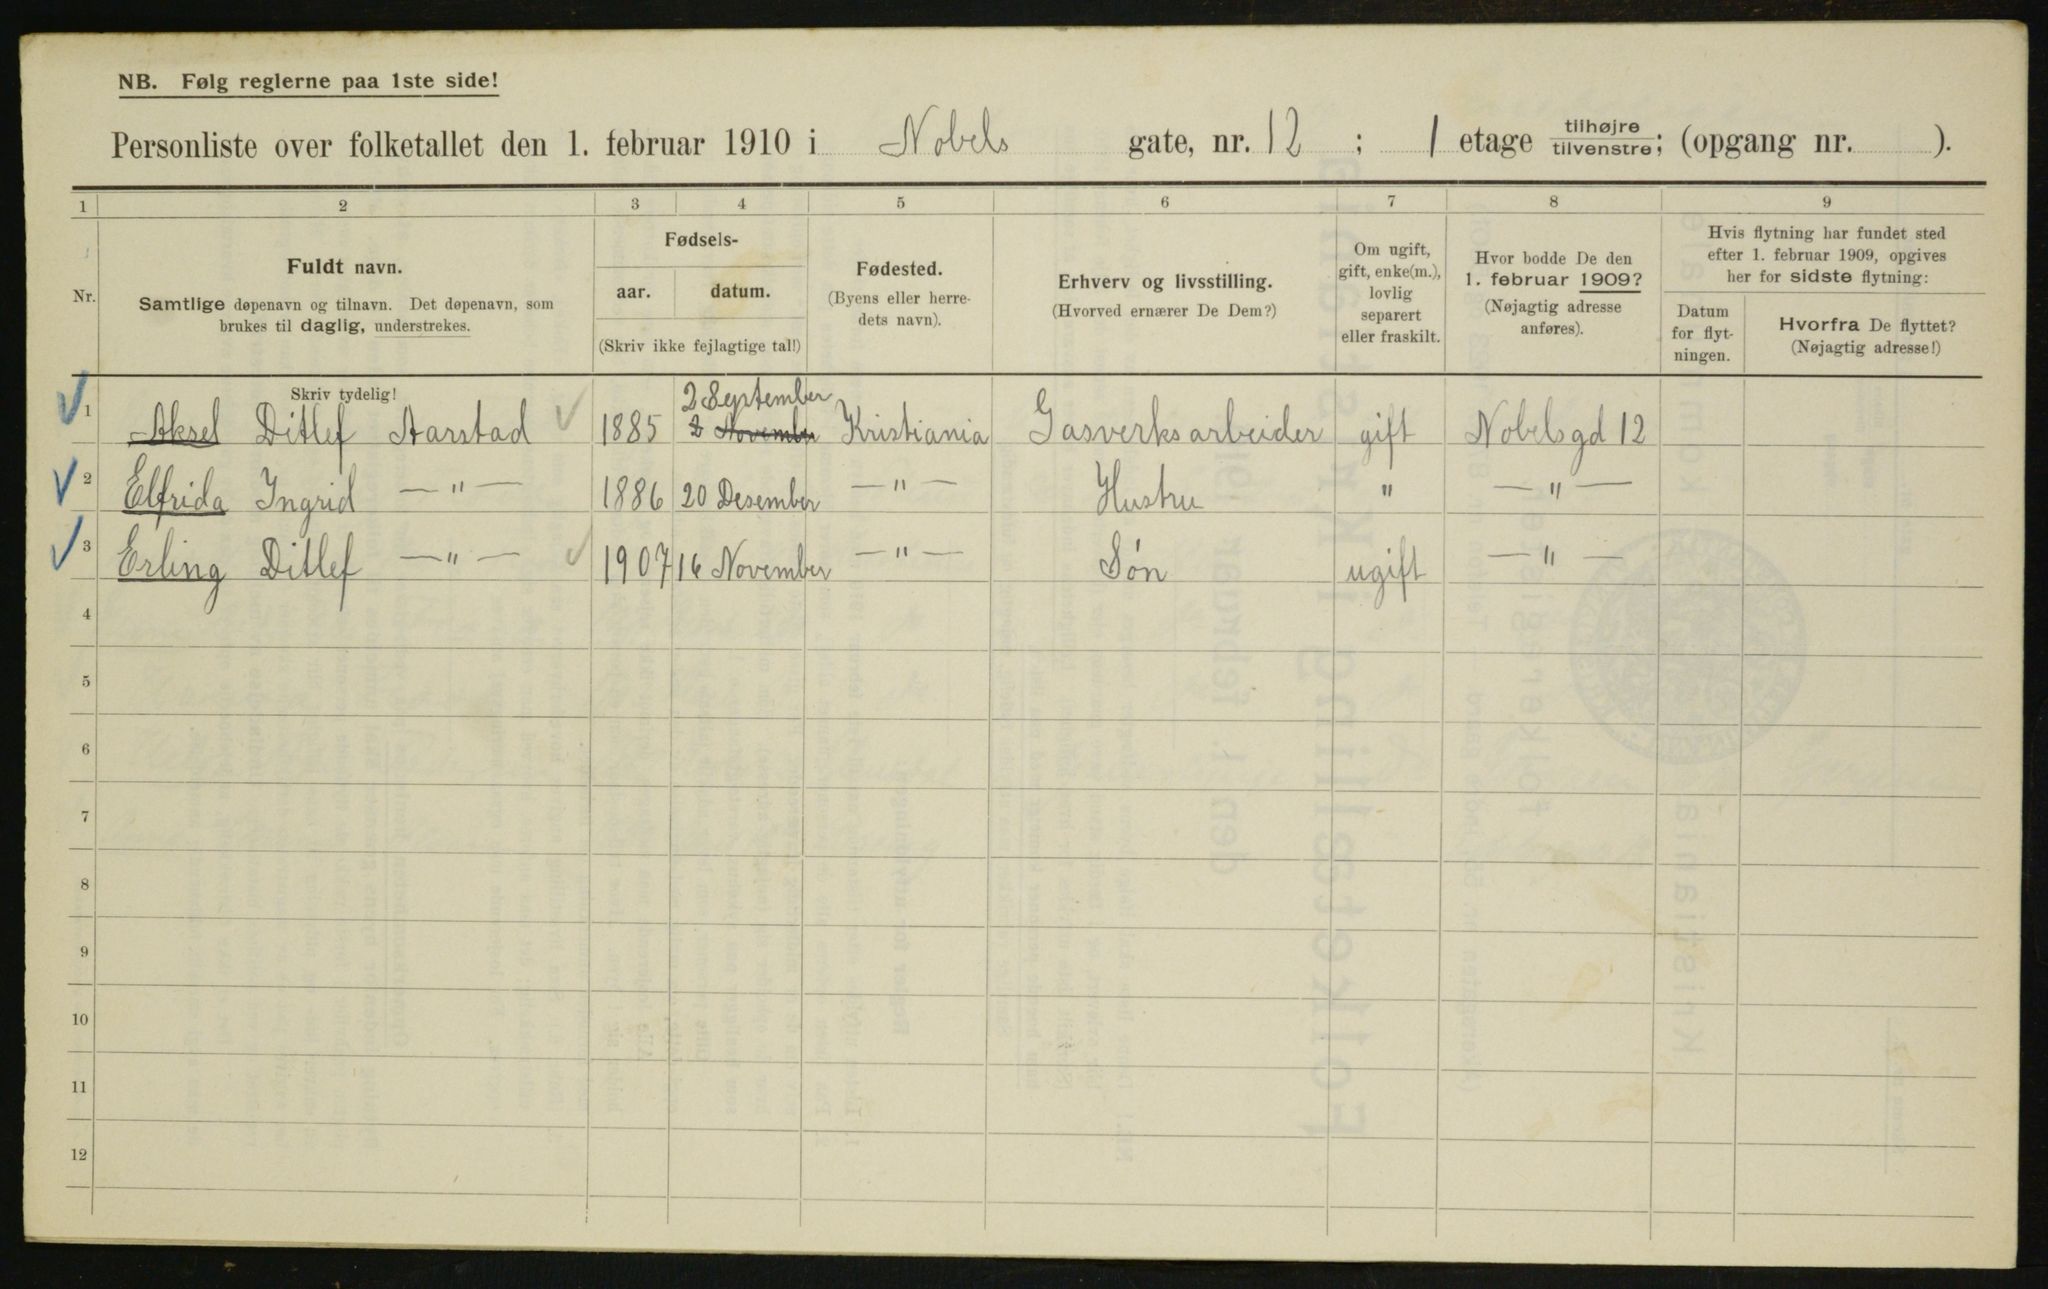 NB. Følg reglerne paa 1ste side!
Personliste over folketallet den 1. februar 1910 i Nobels gate, nr. 12 ; 1 etage tilhøjre tilvenstre; (opgang nr. ).
1 2 3 4 5 6 7 8 9
Nr.
Fuldt navn.
Samtlige døpenavn og tilnavn. Det døpenavn, som
brukes til daglig, understrekes.
Fødsels-
aar. datum.
(Skriv ikke fejlagtige tal!)
Fødested.
(Byens eller herre-
dets navn).
Erhverv og livsstilling.
(Hvorved ernærer De Dem?)
Om ugift,
gift, enke(m.),
lovlig
separert
eller fraskilt.
Hvor bodde De den
1. februar 1909?
(Nøjagtig adresse
anføres).
Hvis flytning har fundet sted
efter 1. februar 1909, opgives
her for sidste flytning:
Datum
for flyt-
ningen.
Hvorfra De flyttet?
(Nøjagtig adresse!)
Skriv tydelig!
2 September
1 Aksel Ditlef Aarstad 1885 2 November Kristiania Gasverksarbeider gift Nobelsgd 12
2 Elfrida Ingrid — " — 1886 20 Desember — " — Hustru " — " —
3 Erling Ditlef — " — 1907 16 November — " — Søn ugift — " —
4
5
6
7
8
9
10
11
12